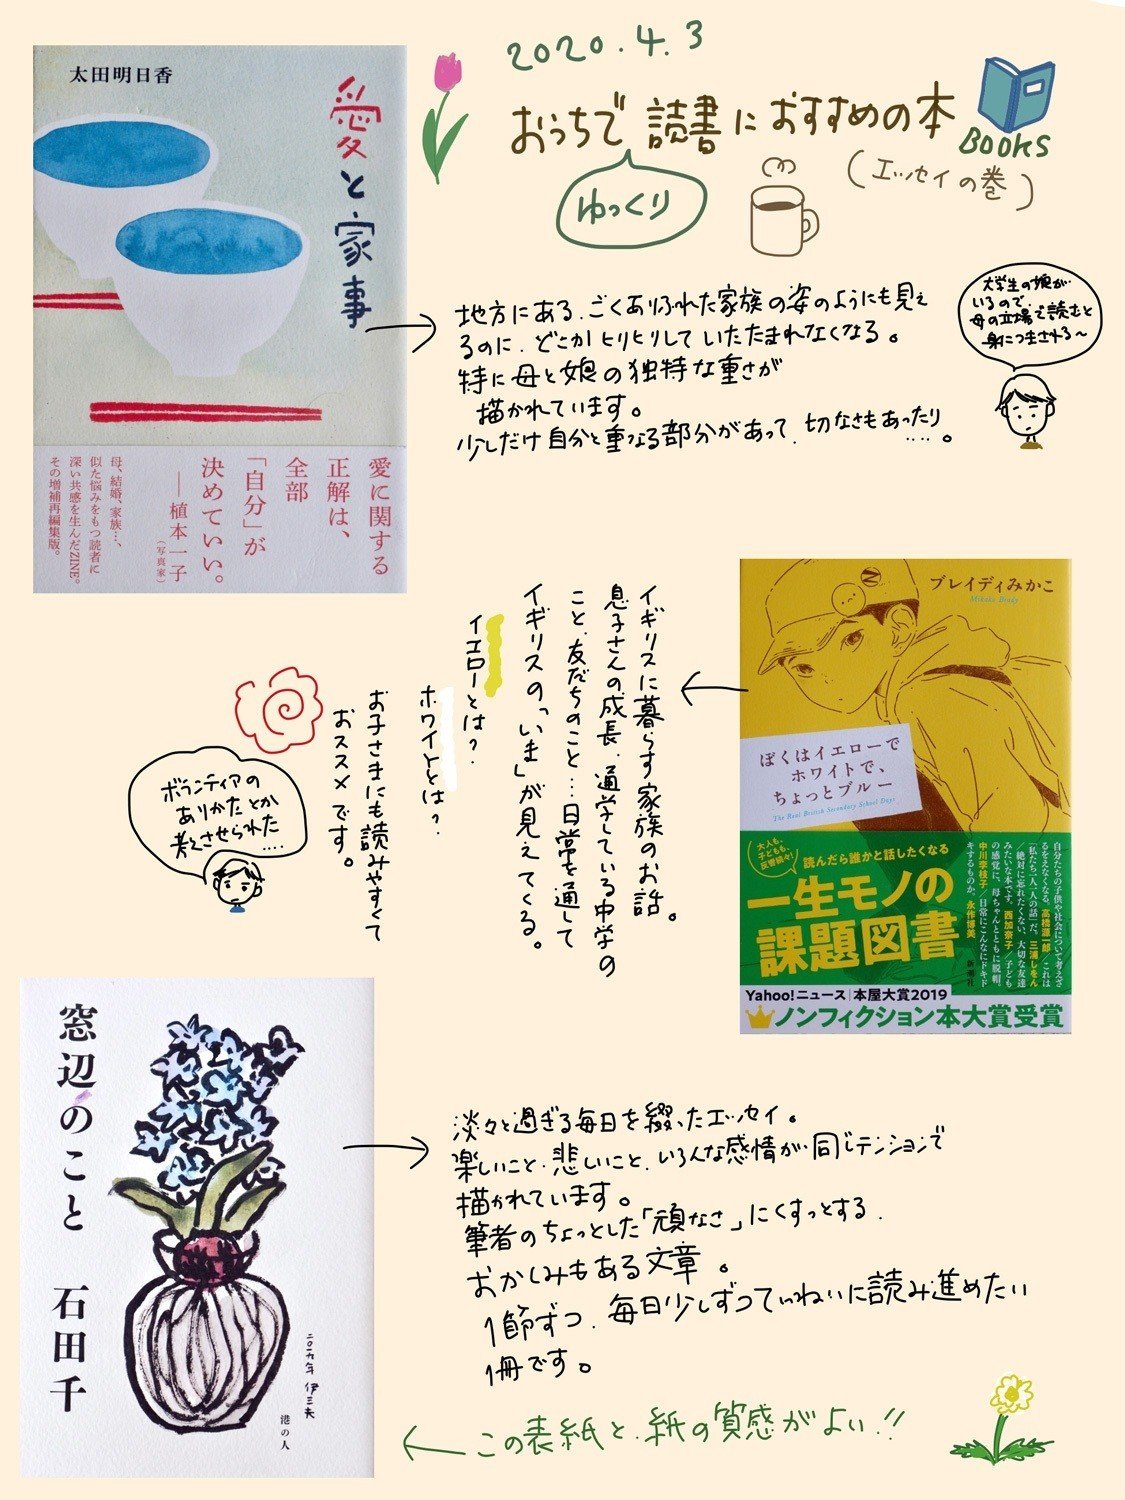 2020.4.3
おうちで読書におすすめの本
ゆっくり
(エッセイの巻)
BOOKS
太田明日香
愛と家事
愛に関する
正解は、
全部
「自分」が
決めていい。
——植本一子
(写真家)
母、結婚、家族…、
似た悩みをもつ読者に
深い共感を生んだZINE。
その増補再編集版。
地方にある、ごくありふれた家族の姿のようにも見え
るのに、どこかヒリヒリしていたたまれなくなる。
特に母と娘の独特な重さが
描かれています。
少しだけ自分と重なる部分があって、切なさもあったり
……。
大学生の娘が
いるので、
母の立場で読むと
身につまされる〜
ブレイディみかこ
Mikako Brady
ぼくはイエローで
ホワイトで、
ちょっとブルー
The Real British Secondary School Days
大人も、
子どもも、
反響続々!
読んだら誰かと話したくなる
一生モノの
課題図書
自分たちの子供や社会について考えざ
るをえなくなる。高橋源一郎/これは
「私たち」一人一人の話だ。三浦しをん
/絶対に忘れたくない、大切な友達
みたいな本です。西加奈子/子ども
の感覚に、母ちゃんとともに脱帽。
中川李枝子/日常にこんなにドキド
キするものか。永作博美
新潮社
Yahoo!ニュース|本屋大賞2019
ノンフィクション本大賞受賞
イギリスに暮らす家族のお話。
息子さんの成長、通学している中学の
こと、友だちのこと…日常を通して
イギリスの「いま」が見えてくる。
イエローとは?
ホワイトとは?
お子さまにも読みやすくて
おススメです。
ボランティアの
ありかたとか
考えさせられた
....
窓辺のこと 石田千
二〇一九年 伊三夫
港の人
淡々と過ぎる毎日を綴ったエッセイ。
楽しいこと、悲しいこと、いろんな感情が同じテンションで
描かれています。
筆者のちょっとした「頑なさ」にくすっとする、
おかしみもある文章。
1節ずつ、毎日少しずつていねいに読み進めたい
1冊です。
この表紙と、紙の質感がよい!!